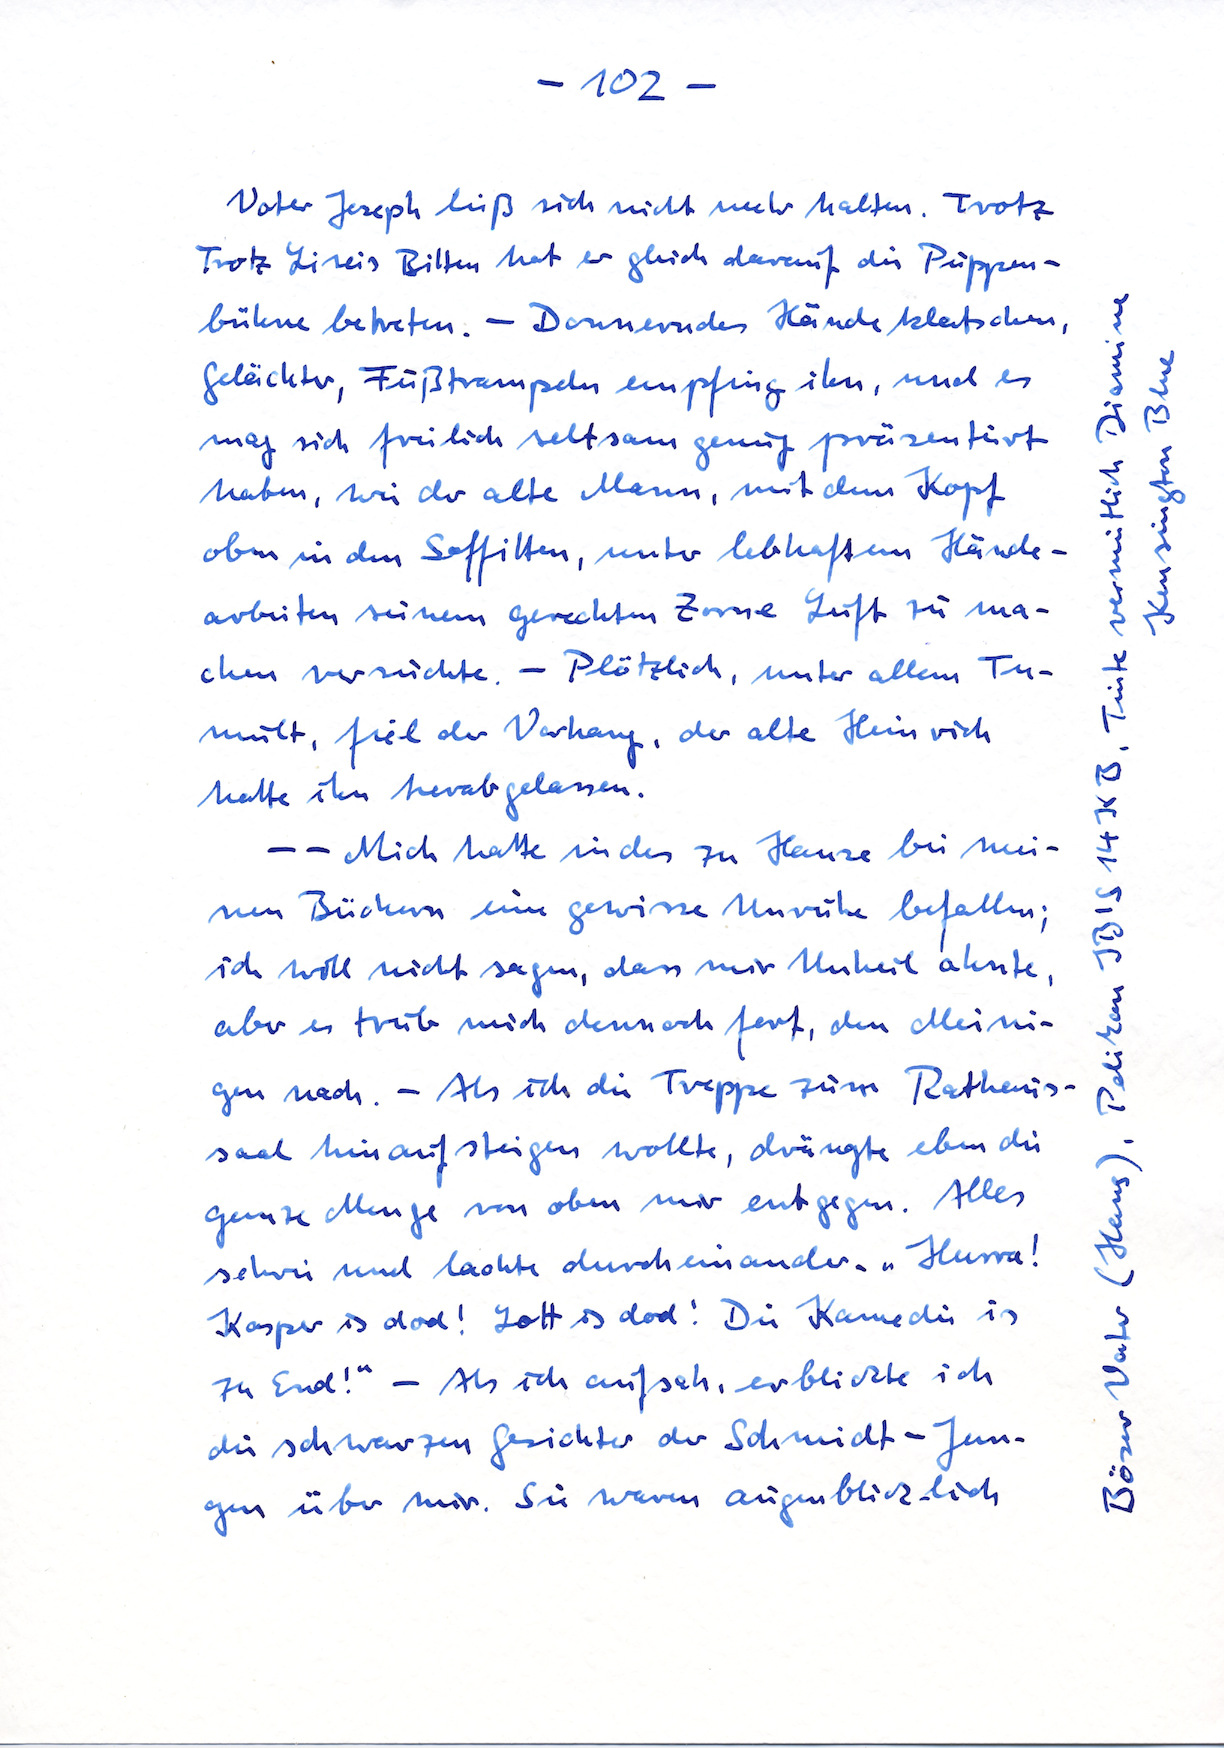 - 102 -
Vater Joseph ließ sich nicht mehr halten. Trotz
Trotz Liseis Bitten hat er gleich darauf die Puppen-
bühne betreten. – Donnerndes Händeklatschen,
Gelächter, Fußtrampeln empfing ihn, und es
mag sich freilich seltsam genug präsentiert
haben, wie der alte Mann, mit dem Kopf
oben in den Soffitten, unter lebhaftem Hände-
arbeiten seinem gerechten Zorne Luft zu ma-
chen versuchte. – Plötzlich, unter allem Tu-
mult, fiel der Vorhang, der alte Heinrich
hatte ihn herabgelassen.
– – Mich hatte indes zu Hause bei mei-
nen Büchern eine gewisse Unruhe befallen;
ich will nicht sagen, dass mir Unheil ahnte,
aber es trieb mich dennoch fort, den Meini-
gen nach. – Als ich die Treppe zum Rathaus-
saal hinaufsteigen wollte, drängte eben die
ganze Menge von oben mir entgegen. Alles
schrie und lachte durcheinander. „Hurra!
Kasper is dod! Lott is dod! Die Kamedie is
zu End!“ – Als ich aufsah, erblickte ich
die schwarzen Gesichter der Schmidt-Jun-
gen über mir. Sie waren augenblicklich
Böser Vater (Hans), Pelikan JBIS 14KB, Tinte vermutlich Diamine
Kensington Blue